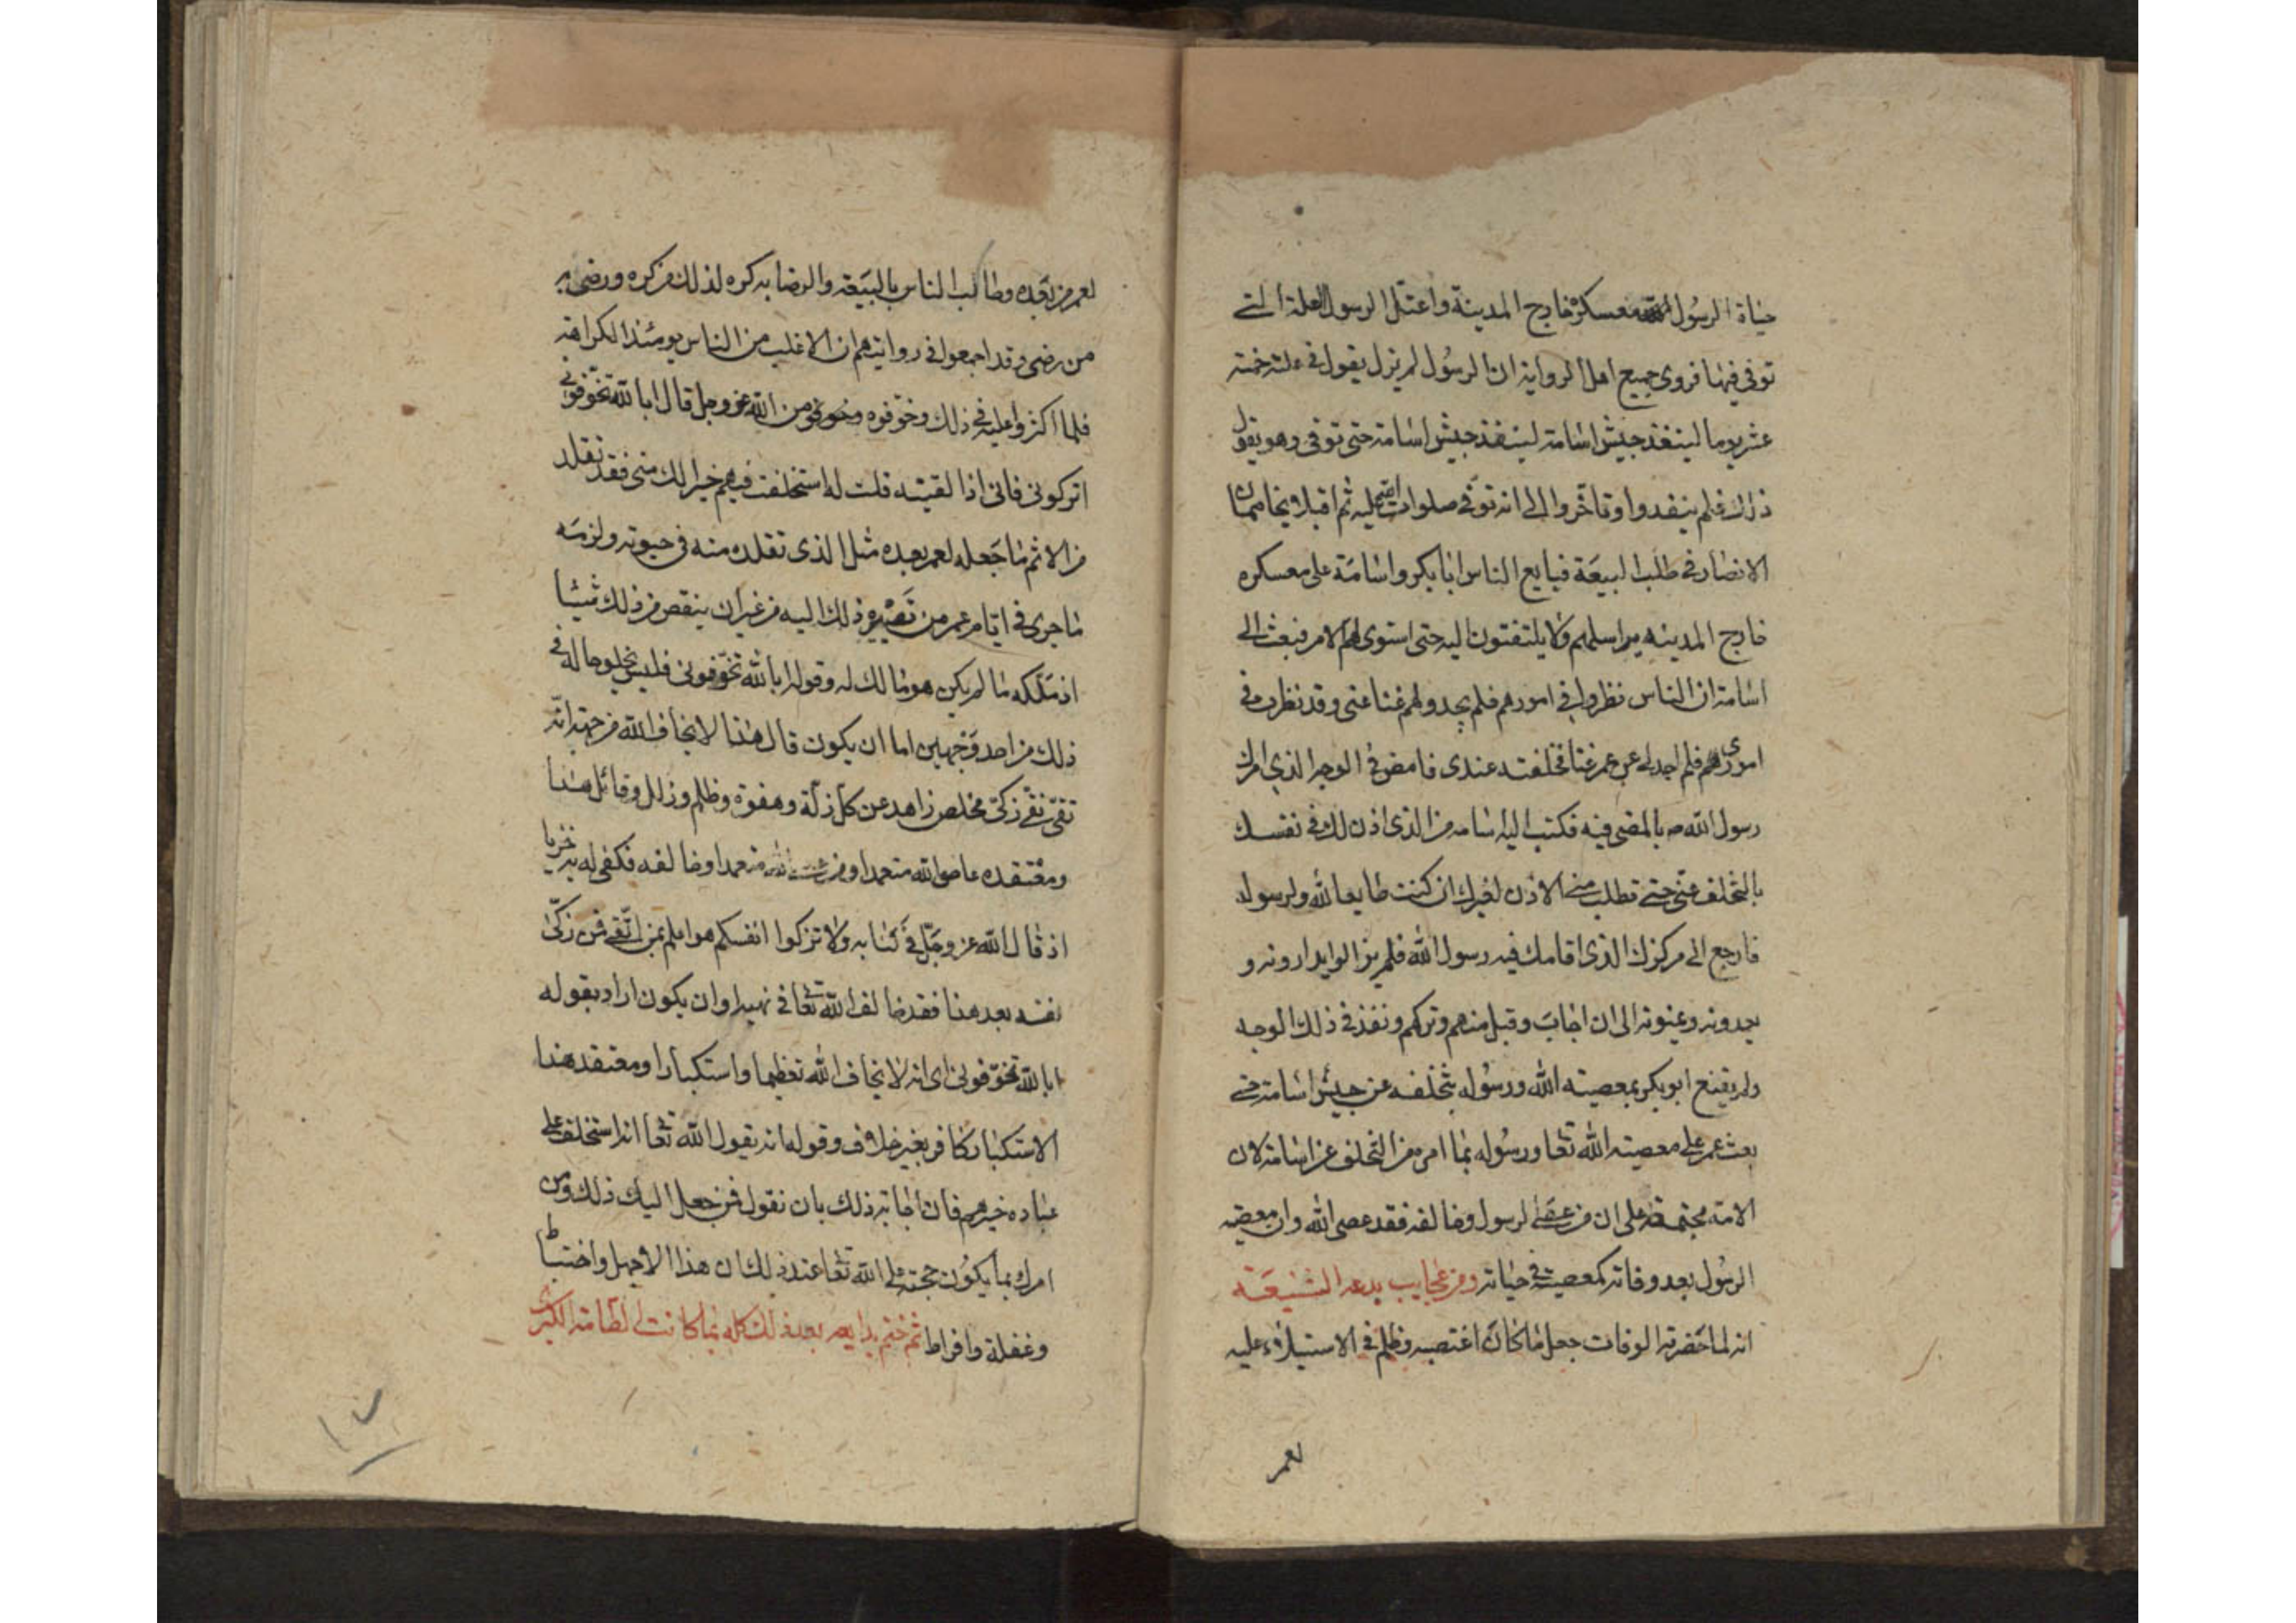 حياة الرسول معسكره خارج المدينة واعتل الرسول العلة التى
توفى فيها فروى جميع اهل الرواية ان الرسول لم يزل يقول فى علته خمسة
عشر يوما لينفذ جيش اسامة لينفذ جيش اسامة حتى توفى وهو يقول
ذلك فلم ينفدوا وتاخروا الى انه توفى صلوات الله عليه ثم اقبلا يخاصمان
الانصار فى طلب البيعة فبايع الناس ابابكر واسامة على معسكره
خارج المدينة يراسلهم ولا يلتفتون اليه حتى استوى لهم الامر فبعث الى
اسامة ان الناس نظروا فى امورهم فلم يجدوا لهم غنا عنى وقد نظرت فى
امورى هم فلم اجد لى عن عمر غنا فخلفته عندى فامض فى الوجه الذى امرك
رسول الله ص بالمضى فيه فكتب اليه اسامه من الذى اذن لك فى نفسك
بالتخلف عنى حتى تطلب منى الاذن لغيرك ان كنت طايعا لله ولرسوله
فارجع الى مركزك الذى اقامك فيه رسول الله فلم يزالوا يدارونه و
يعدونه ويمنونه الى ان اجاب وقبل منهم وتركهم ونفذ فى ذلك الوجه
ولم يقنع ابو بكر بمعصيته الله ورسوله بتخلفه عن جيش اسامة حتى
بعث عمر على معصيته الله تعا ورسوله بما امره من التخلف عن اسامة لان
الامة مجتمعة على ان من عصى الرسول وخالفه فقد عصى الله وان معصيته
الرسول بعد وفاته كمعصيته فى حياته ومن عجايب بدعه الشنيعة
انه لما حضرته الوفات جعل ما كان اغتصبه وظلم فى الاستيلاء عليه
لعمر
لعمر من بعده وطالب الناس بالبيعة والرضا به كره لذلك من كره ورضى به
من رضى وقد اجمعوا فى روايتهم ان الاغلب من الناس يومئذ الكراهة
فلما اكثروا عليه فى ذلك وخوفوه وخوفوه من الله عز وجل قال ابا لله تخوفونى
اتركونى فانى اذا لقيته قلت له استخلفت فيهم خيرا لك منى فقد تقلد
من الاثم ما جعله لعمر بعده مثل الذى تقلده منه فى حيوته ولزمه
ما جرى فى ايام عمر من تصييره ذلك اليه من غير ان ينقص من ذلك شيئا
اذ ملكه ما لم يكن هو مالك له وقوله ابالله تخوفونى فليس يخلو حاله فى
ذلك من احد وجهين اما ان يكون قال هذا لا يخاف الله من جهة انه
تقى نقى زكى مخلص زاهد عن كل زلة وهفوة وظلم وزلل وقائل هذا
ومعتقده عاصى الله متعمدا ومن عصى الله متعمدا وخالفه فكفى له به خزيا
اذ قال الله عز وجل فى كتابه ولا تزكوا انفسكم هو اعلم بمن اتقى فمن زكى
نفسه بعد هذا فقد خالف الله تعا فى نهيه او ان يكون اراد بقوله
ابا لله تخوفونى اى انه لا يخاف الله تعظيما واستكبارا ومعتقد هذا
الاستكبار كافر بغير خلاف وقوله انه يقول الله تعا انه استخلف على
عباده خيرهم فان اجابه ذلك بان نقول فمن جعل اليك ذلك ومن
امرك بما يكون حجته على الله تعا عند ذلك ان هذا الا جهل واختباط
وغفلة وافراط ثم ختم بدايعه بعد ذلك كله بما كانت له الطامة الكبرى
١٧